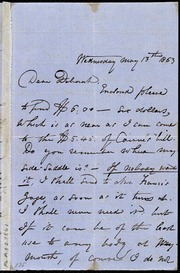 Wednesday May 13th 1863
Dear Deborah,
Enclosed please
to find $6.00 — six dollars,
which is as near as I can come
to the $5.45. of Carrie's bill.
Do you remember where my
side saddle is? — If nobody wants
it, I shall send to also Francis
Gages, as soon as it turns up.
I shall never need it, but
if it can be of the least
use to any body at Wey
mouth, of course I do not